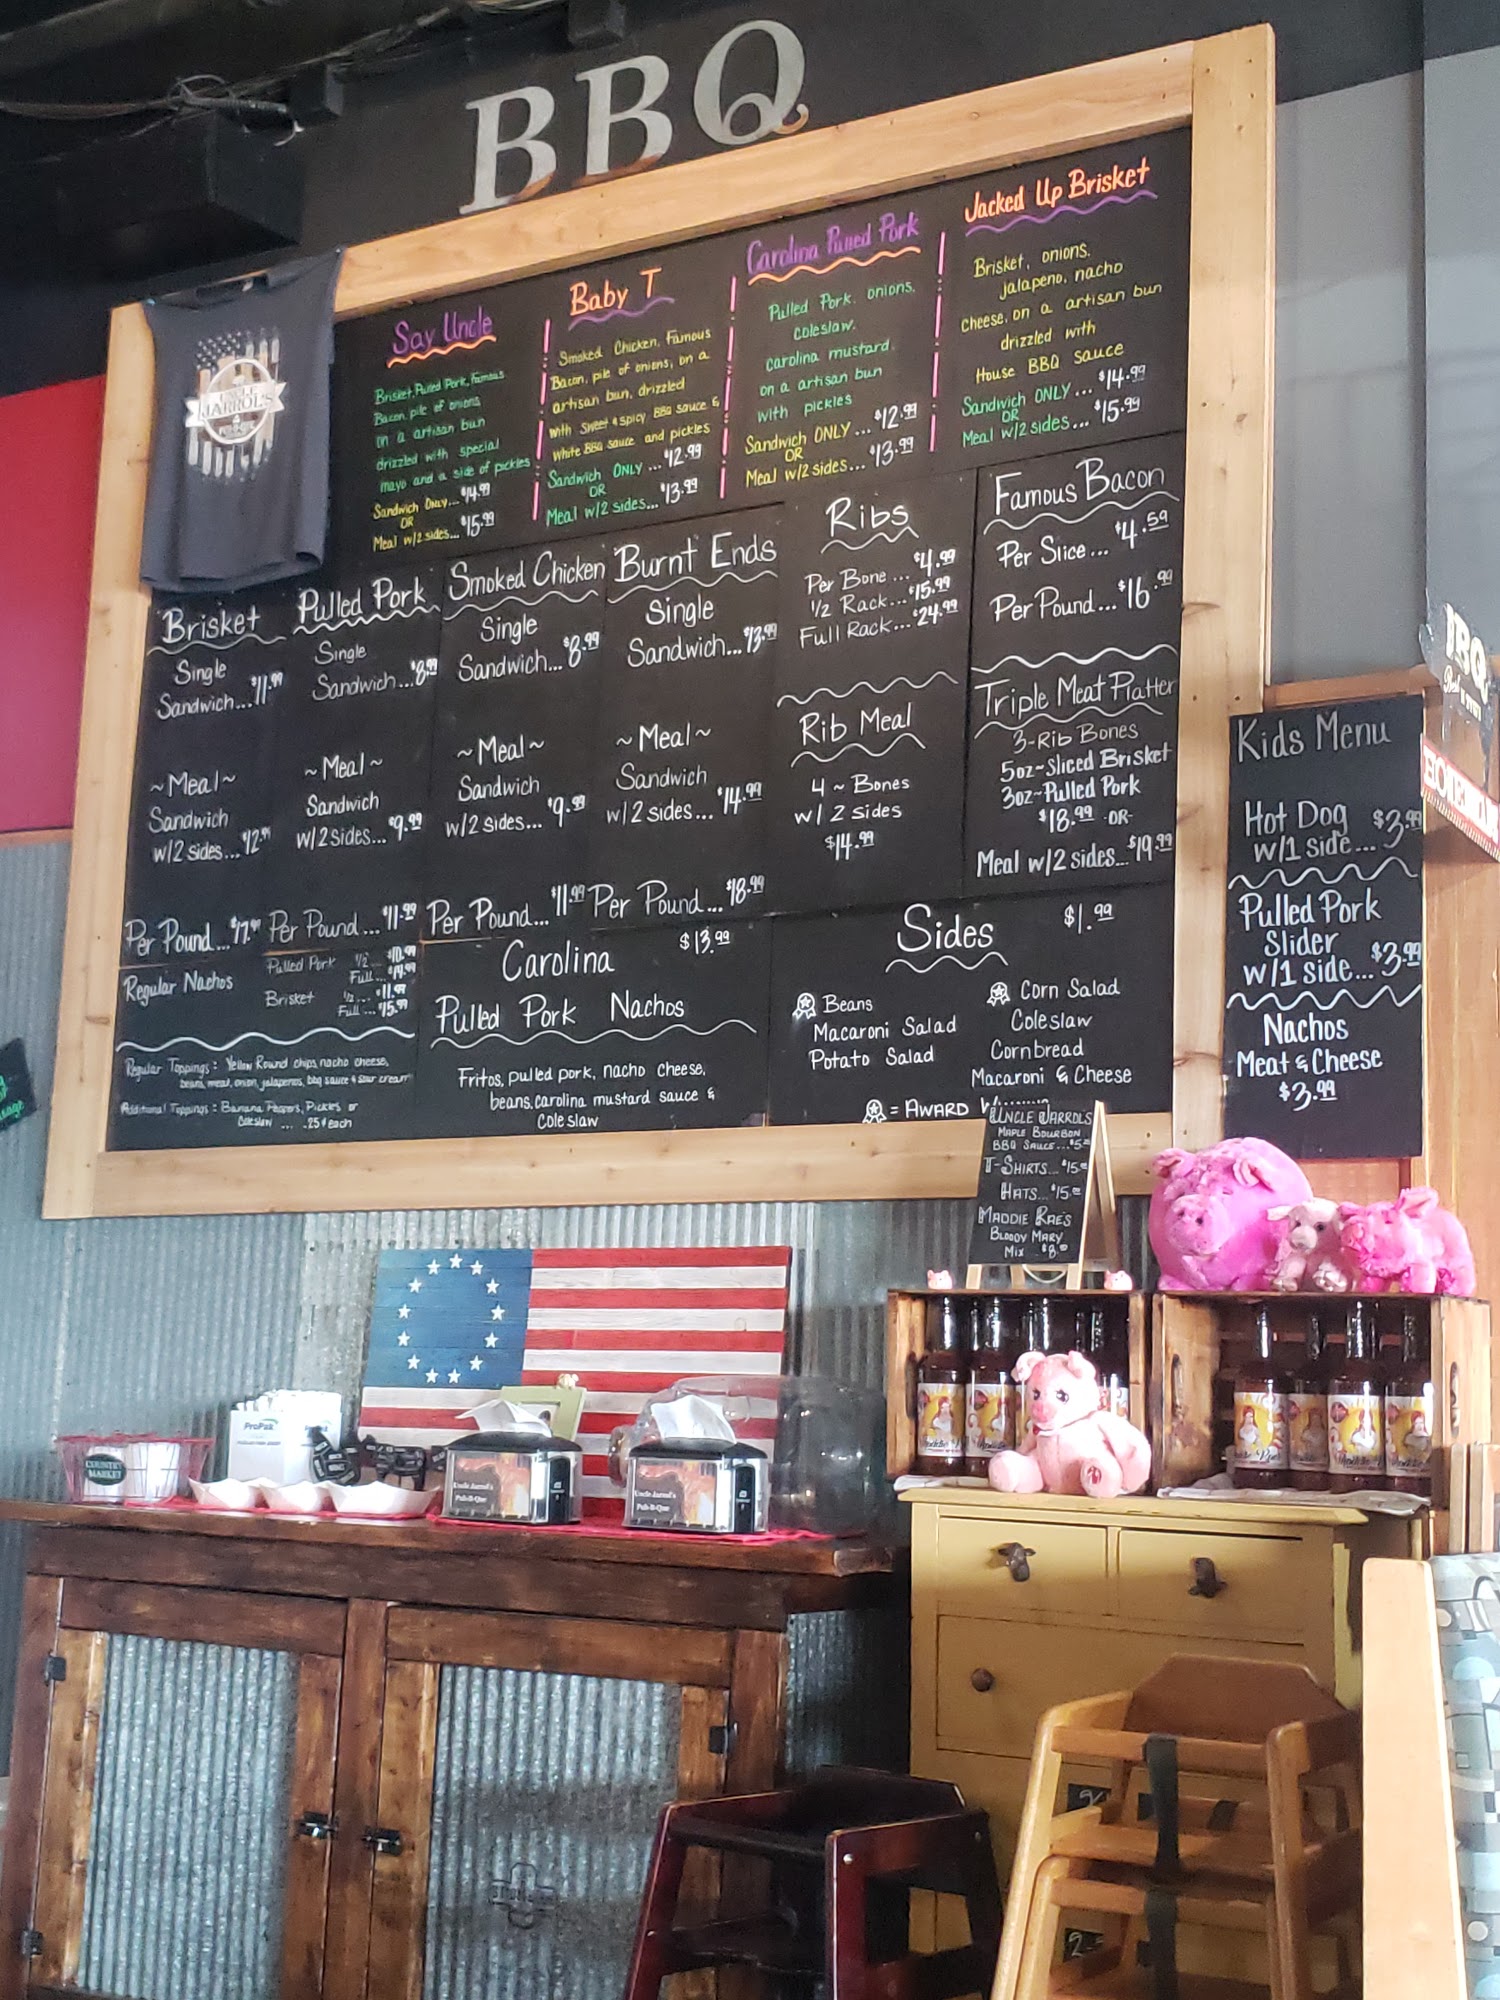 BBQ
UNCLE
JARROL'S
Say Uncle
Brisket, Pulled Pork, Famous
Bacon, pile of onions
on a artisan bun
drizzled with special
mayo and a side of pickles
Sandwich Only... $14.99
OR
Meal w/2 sides... $15.99
Baby T
Smoked Chicken, Famous
Bacon, pile of onions, on a
artisan bun, drizzled
with Sweet & spicy BBQ sauce &
white BBQ sauce and pickles
Sandwich ONLY ... $12.99
OR
Meal w/2 sides... $13.99
Carolina Pulled Pork
Pulled Pork, onions,
coleslaw,
carolina mustard,
on a artisan bun
with pickles
Sandwich ONLY ... $12.99
OR
Meal w/2 sides... $13.99
Jacked Up Brisket
Brisket, onions,
jalapeno, nacho
cheese, on a artisan bun
drizzled with
House BBQ sauce
Sandwich ONLY ... $14.99
OR
Meal w/2 sides... $15.99
Brisket
Single
Sandwich... $11.99
~Meal~
Sandwich
w/2 sides... $12.99
Per Pound... $17.99
Pulled Pork
Single
Sandwich... $8.99
~Meal~
Sandwich
w/2 sides... $9.99
Per Pound... $11.99
Smoked Chicken
Single
Sandwich... $8.99
~Meal~
Sandwich
w/2 sides... $9.99
Per Pound... $11.99
Burnt Ends
Single
Sandwich... $13.99
~Meal~
Sandwich
w/2 sides... $14.99
Per Pound... $18.99
Ribs
Per Bone ... $4.99
1/2 Rack... $15.99
Full Rack... $24.99
Rib Meal
4 ~ Bones
w/ 2 sides
$14.99
Famous Bacon
Per Slice ... $4.59
Per Pound... $16.99
Triple Meat Platter
3-Rib Bones
5oz~Sliced Brisket
3oz~Pulled Pork
$18.99 -OR-
Meal w/2 sides... $19.99
Regular Nachos
Pulled Pork 1/2 ... $10.99
Full ... $14.99
Brisket 1/2 ... $11.99
Full ... $15.99
Regular Toppings: Yellow Round chips, nacho cheese,
beans, meat, onion, jalapenos, bbq sauce & sour cream
Additional Toppings: Banana Peppers, Pickles or
Coleslaw .... .25¢ each
Carolina $13.99
Pulled Pork Nachos
Fritos, pulled pork, nacho cheese,
beans, carolina mustard sauce &
Coleslaw
Sides $1.99
Beans
Macaroni Salad
Potato Salad
Corn Salad
Coleslaw
Cornbread
Macaroni & Cheese
= AWARD
Kids Menu
Hot Dog $3.99
w/1 side...
Pulled Pork
Slider
w/1 side... $3.99
Nachos
Meat & Cheese
$3.99
BBQ
UNCLE JARROL'S
MAPLE BOURBON
BBQ SAUCE...$5
T-SHIRTS...$15
HATS...$15
MADDIE RAE'S
BLOODY MARY
MIX $8
ProPak
COUNTRY
MARKET
Uncle Jarrol's
Pub-B-Que
Uncle Jarrol's
Pub-B-Que